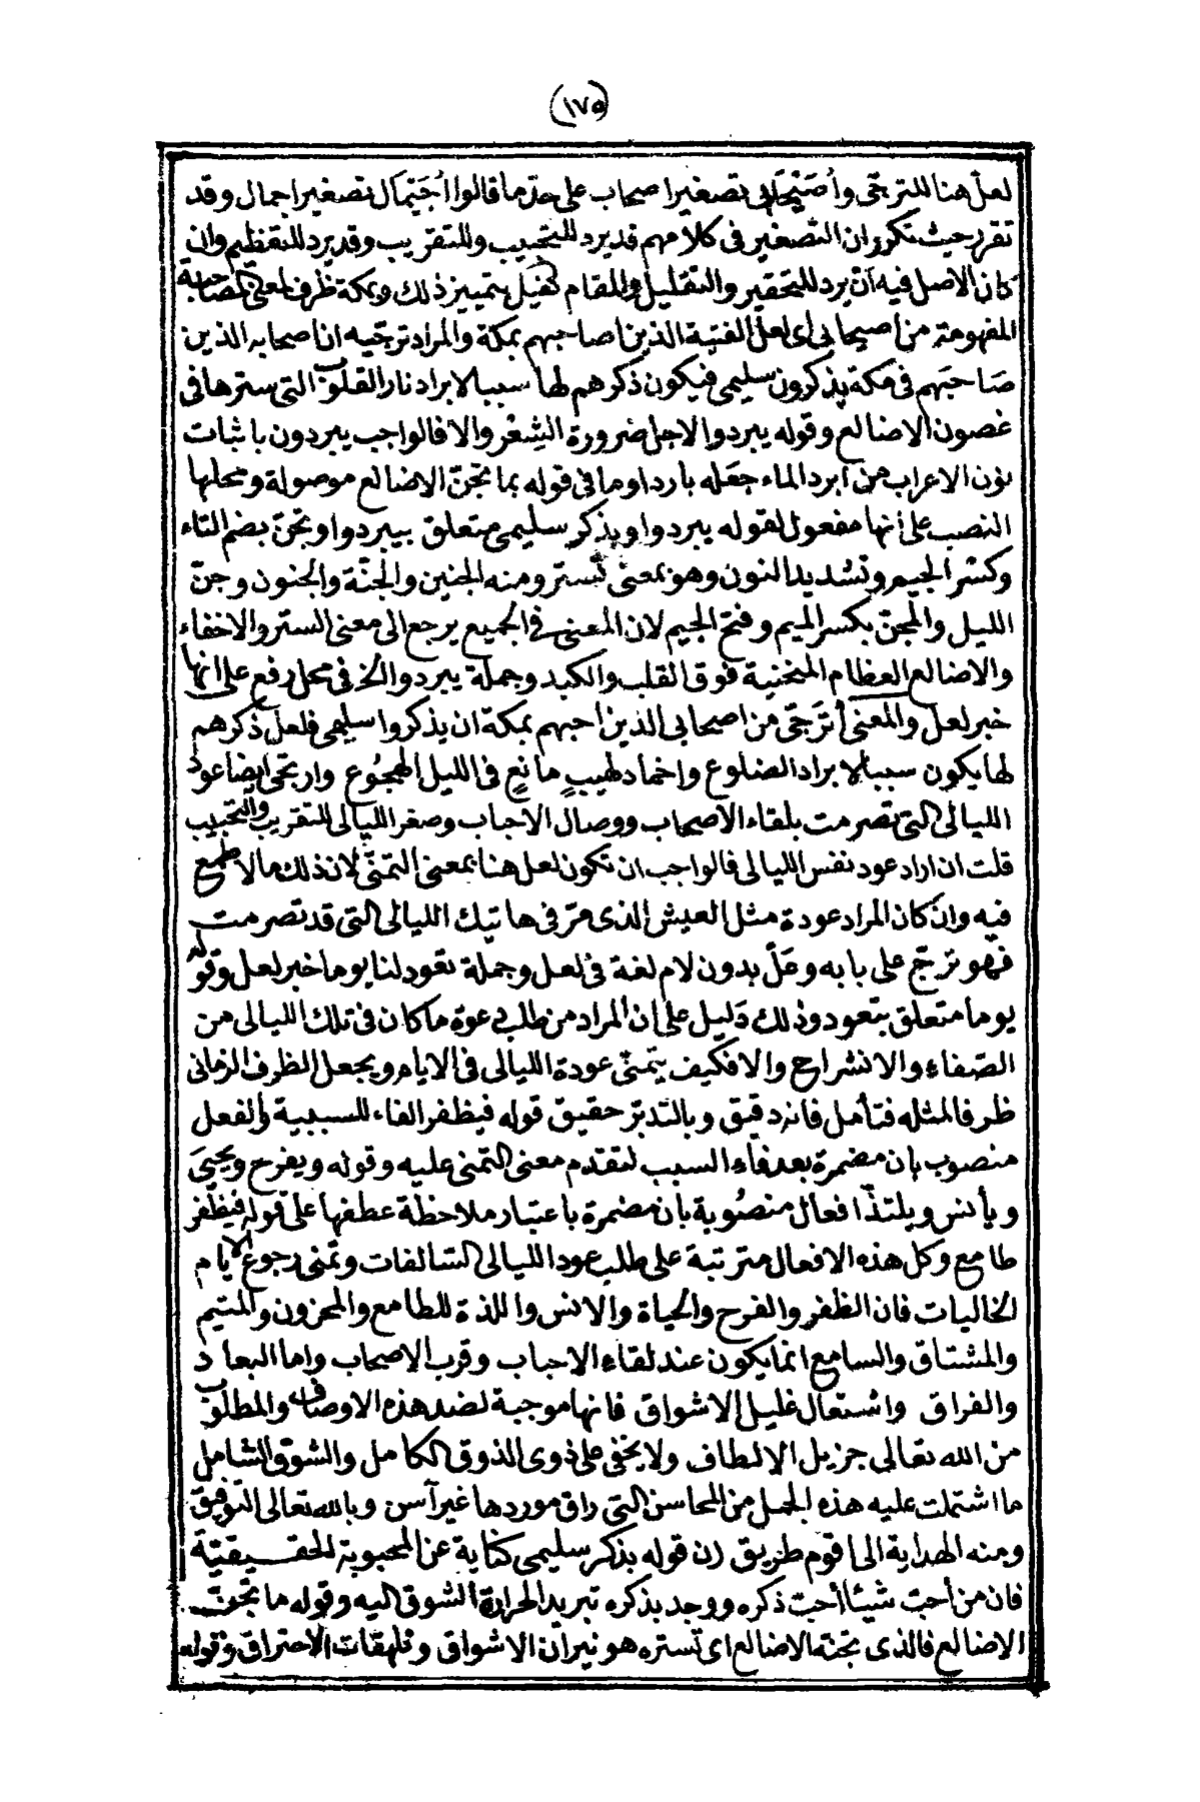 (١٧٥)
لعلّ هنا للترجّى وأُصَيْحَابى تصغير اصحاب على حدّ ما قالوا أُجَيْمَال تصغير اجمال وقد
تقرر حيث تكرر ان التصغير فى كلامهم قد يرد للتحبيب وللتقريب وقد يرد للتعظيم وان
كان الاصل فيه أن يرد للتحقير والتقليل والمقام كفيل بتمييز ذلك وبمكة ظرف لمعنى المصاحبة
المفهومة من اصيحابى اى لعل الفتية الذين اصاحبهم بمكة والمراد ترجّيه ان اصحابه الذين
صَاحبَهم فى مكة يذكرون سليمى فيكون ذكرهم لها سببا لابراد نار القلوب التى سترها فى
غصون الاضالع وقوله يبردوا لاجل ضرورة الشِعْر والا فالواجب يبردون باثبات
نون الاعراب من ابرد الماء جعَله باردا وما فى قوله بما تجنّ الاضالع موصولة ومحلها
النصب على أنها مفعول لقوله يبردوا وبذكر سليمى متعلق بيبردوا وتجنّ بضم التاء
وكسْر الجيم وتشديد النون وهو بمعنى تستر ومنه الجنين والجنّة والجنون وجنّ
الليل والمجنّ بكسر الميم وفتح الجيم لان المعنى فى الجميع يرجع الى معنى الستر والاخفاء
والاضالع العظام المنحنية فوق القلب والكبد وجملة يبردوا الخ فى محل رفع على انها
خبر لعل والمعنى أترَجّى من اصيحابى الذين احبهم بمكة ان يذكروا سليمى فلعل ذكرهم
لها يكون سببا لابراد الضلوع واخماد لهيبٍ مانعٍ فى الليل الهجُوع وارتجى ايضا عود
الليالى التى تصرمت بلقاء الاصحاب ووصال الاحباب وصغر الليالى للتقريب والتحبيب
قلت ان اراد عود نفس الليالى فالواجب ان تكون لعل هنا بمعنى التمنّى لان ذلك مالا طمع
فيه وان كان المراد عودة مثل العيش الذى مرّ فى هاتيك الليالى التى قد تصرمت
فهو ترجّ على بابه وعَلّ بدون لام لغة فى لعل وجملة تعود لنا يوما خبر لعل وقوله
يوما متعلق بتعود وذلك دَليل على ان المراد من طلب عودة ما كان فى تلك الليالى من
الصّفاء والانشراح والا فكيف يتمنّى عودة الليالى فى الايام ويجعل الظرف الزمانى
ظرفا لمثله فتأمل فانه دقيق وبالتدبّر حقيق قوله فيظفر الفاء للسببية والفعل
منصوب بان مضمرة بعد فاء السبب لتقدم معنى التمنى عليه وقوله ويفرح ويحيىَ
ويأنس ويلتذّ افعال منصُوبة بان مضمرة باعتبار ملاحظة عطفها على قوله فيظفر
طامع وكل هذه الافعال مترتبة على طلب عود الليالى السّالفات وتمنى رجوع الايام
الخاليات فان الظفر والفرح والحياة والانس واللذة للطامع والمحزون والمتيم
والمشتاق والسامع انما يكون عند لقاء الاحباب وقرب الاصحاب واما البعاد
والفراق واشتعال غليل الاشواق فانها موجبة لضد هذه الاوصاف والمطلوب
من الله تعالى جزيل الالطاف ولا يخفى على ذوى الذوق الكامل والشوق الشامل
ما اشتملت عليه هذه الجمل من المحاسن التى راق موردها غير آسن وبالله تعالى التوفيق
ومنه الهداية الى اقوم طريق (ن قوله بذكر سليمى كناية عن المحبوبة الحقيقيّة
فان من أحبّ شيئا أحبّ ذكره ووجد بذكره تبريد الحرارة الشوق اليه وقوله ما تجنّ
الاضالع فالذى تجنه الاضالع اى تستره هو نيران الاشواق وتلهقات الاحتراق وقوله